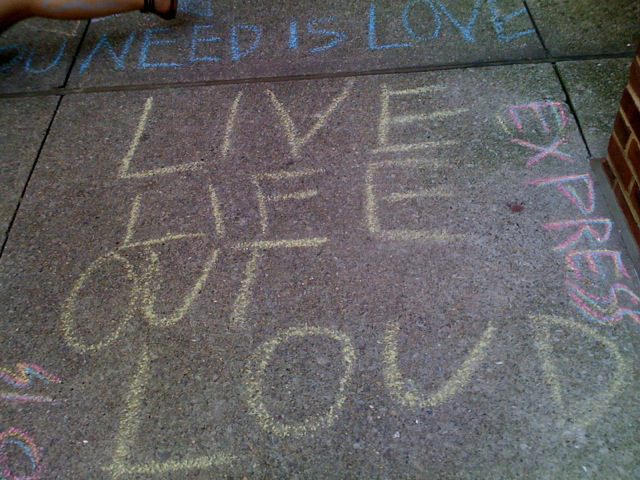 OU NEED IS LOVE
LIVE
LIFE
OUT
LOUD
EXPRESS